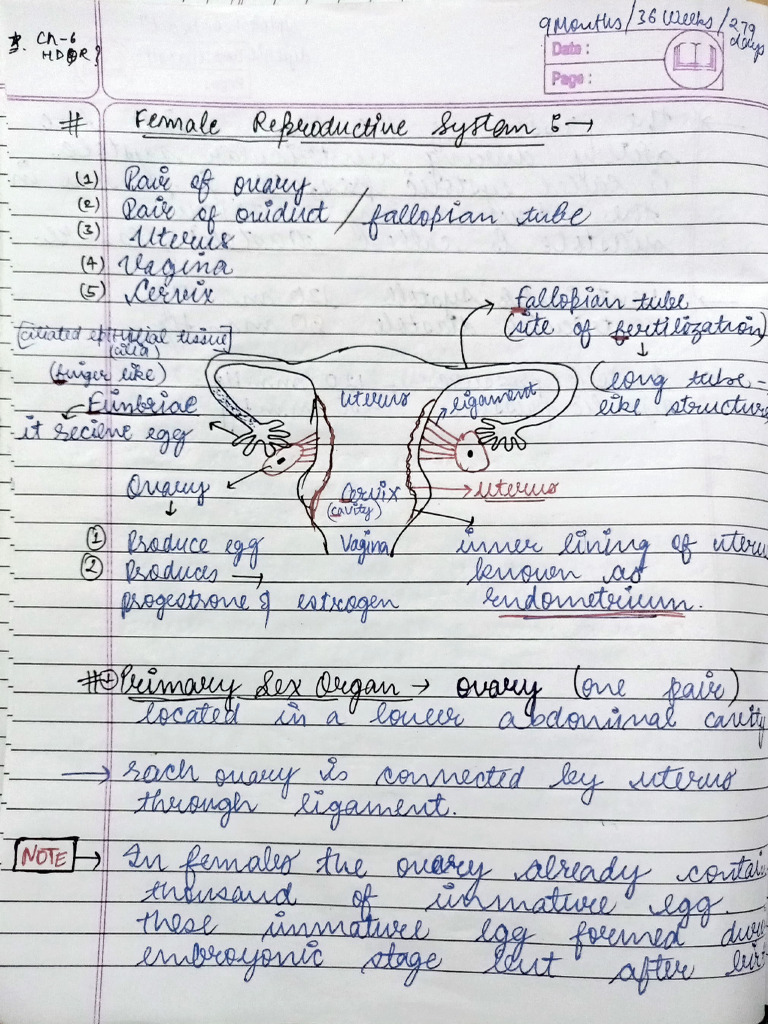 3. Ch-6
HDOR?
9 Months / 36 Weeks / 279 days
Date :
Page :
# Female Reproductive System :→
(1) Pair of ovary.
(2) Pair of oviduct / fallopian tube
(3) Uterus
(4) Vagina
(5) Cervix
Fallopian tube
(site of fertilization)
(long tube-
like structure
(ciliated epithelial tissue)
(cilia)
(finger like)
Fimbriae
it recieve egg
Uterus
ligament
Ovary
Cervix
(cavity)
Uterus
Vagina
① Produce egg
② Produces →
progestrone & estrogen
inner lining of uteru
known as
endometrium.
# ① Primary Sex Organ → ovary (one pair)
located in a lower abdominal cavity
→ Each ovary is connected by uterus
through ligament.
NOTE → In females the ovary already contain
thousand of immature egg.
these immature egg formed duri
embroyonic stage but after birt